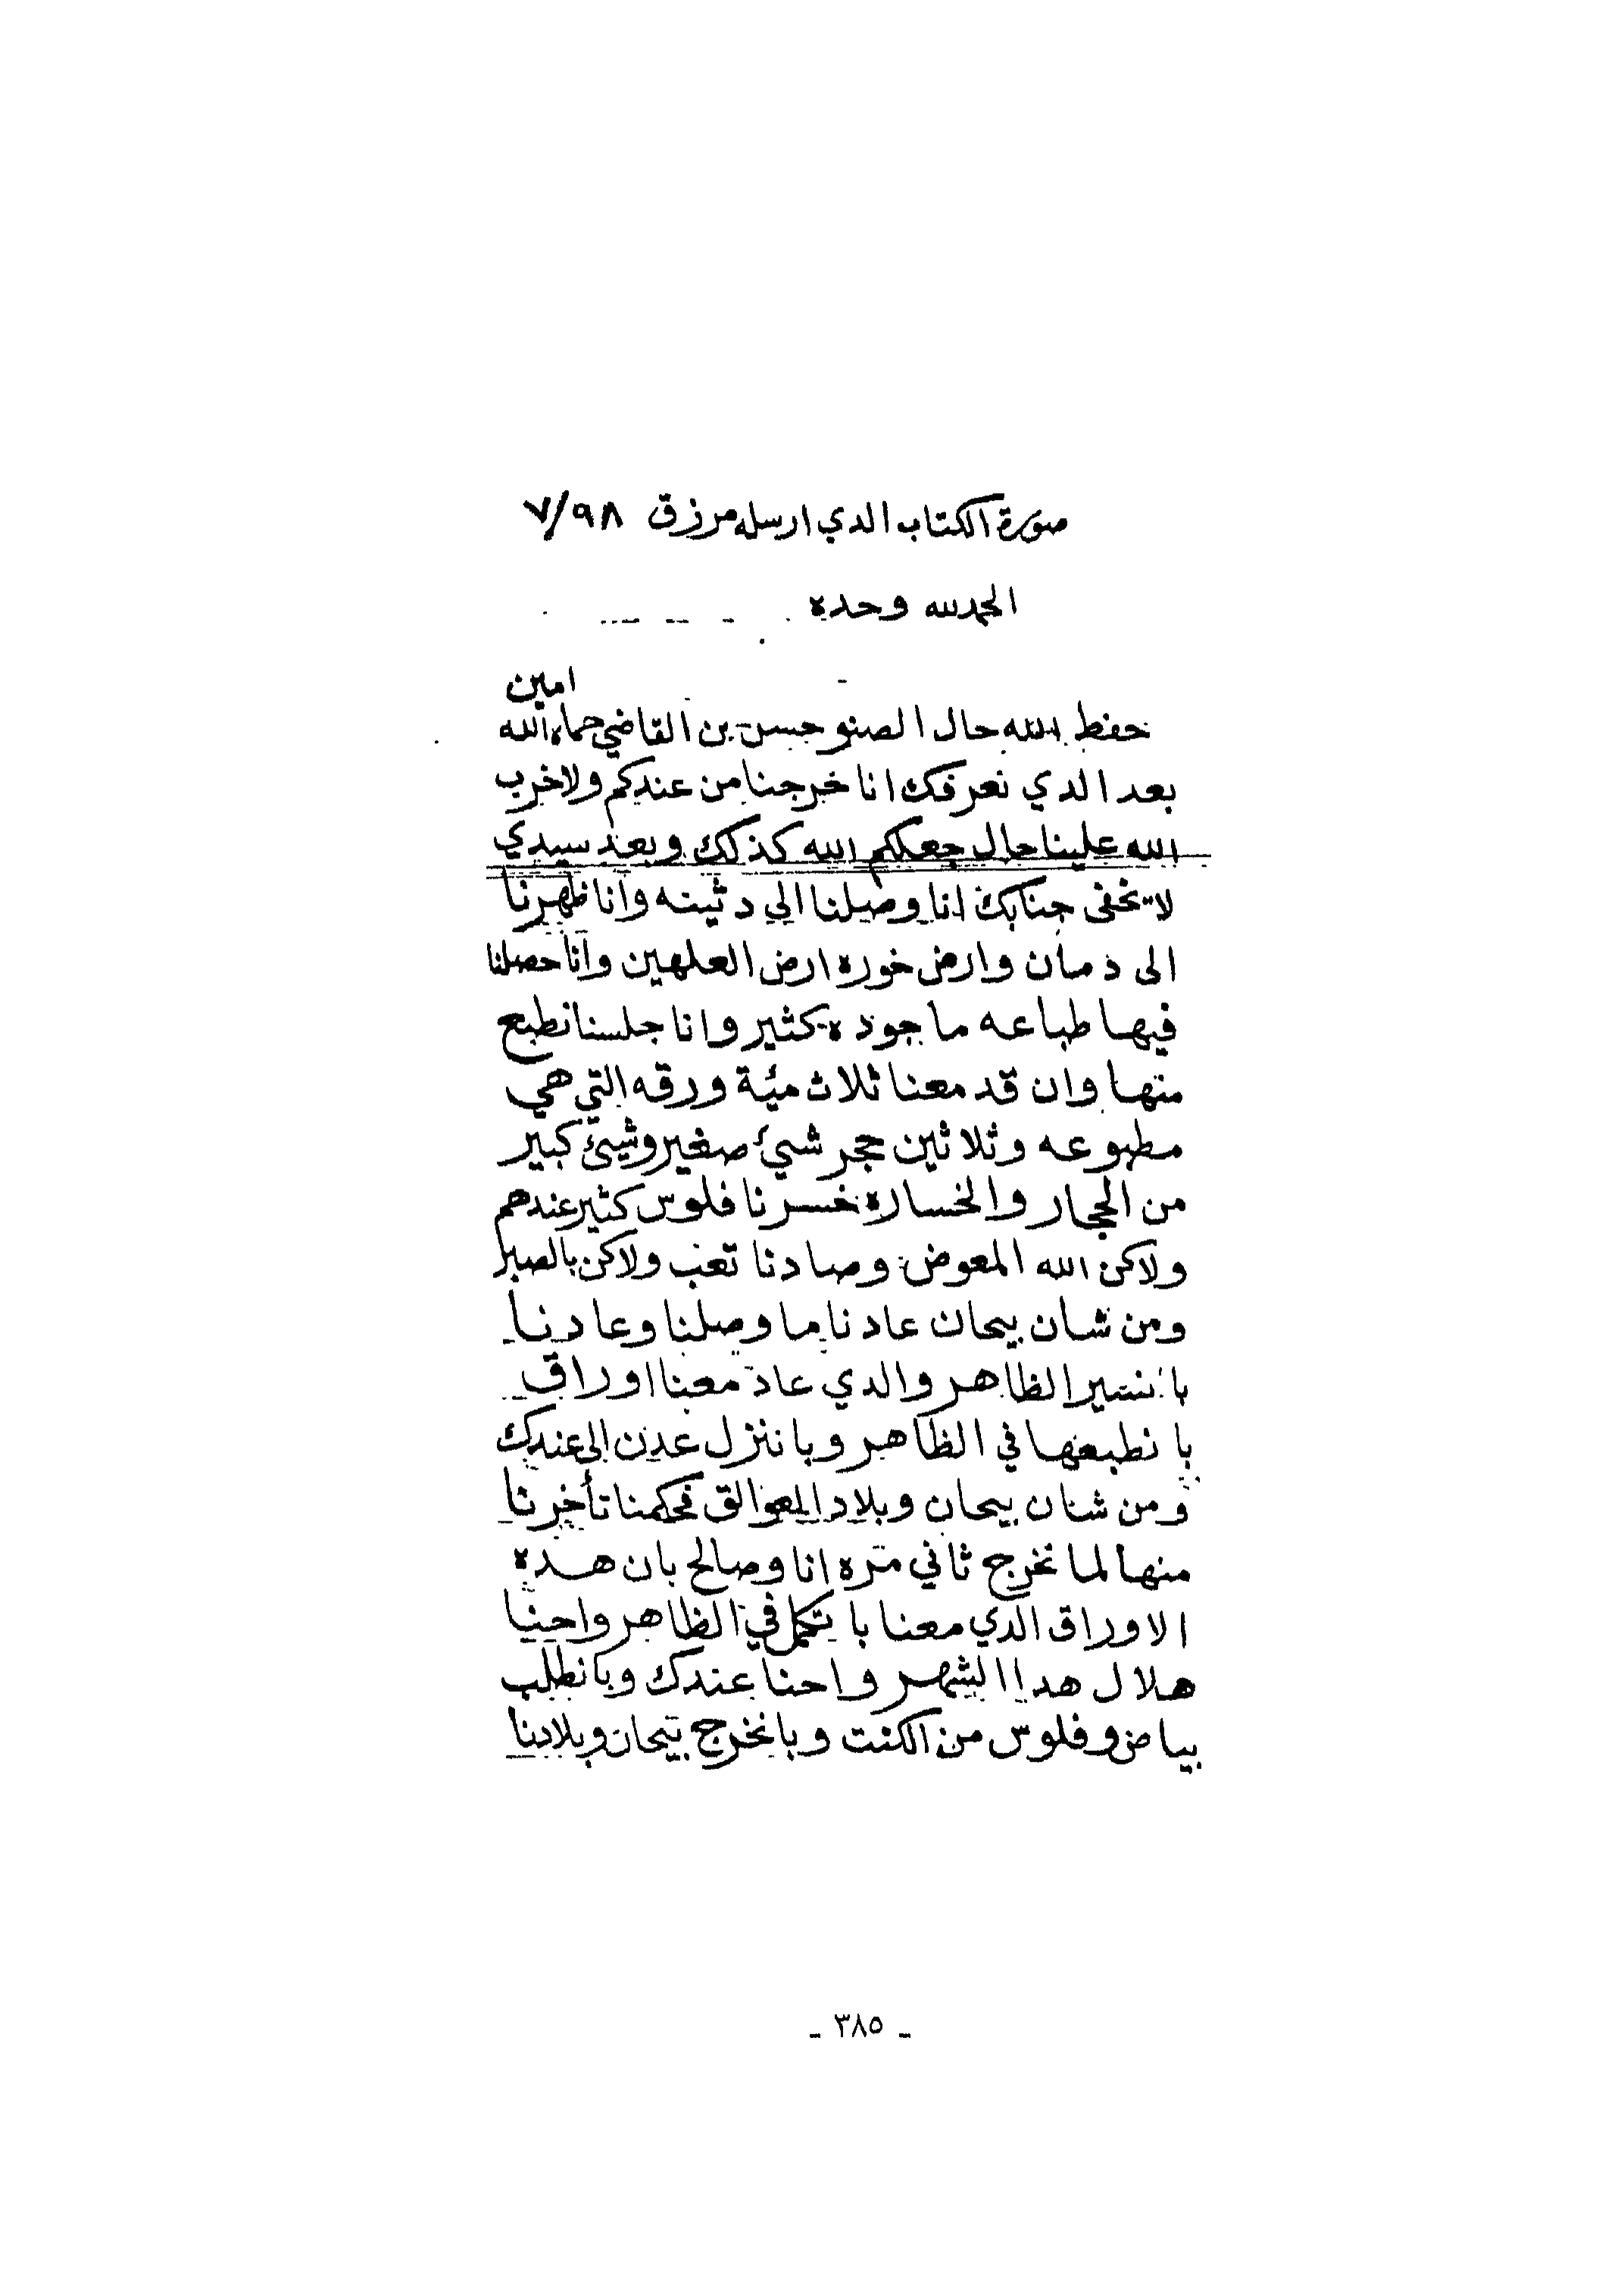 صورة الكتاب الدي ارسله مرزق ٧/٩٨
الحمد لله وحده
امين
حفظ الله حال الصنو حسن بن القاضي حماه الله
بعد الدي نعرفك انا خرجنا من عندكم ولا خرب
الله علينا حال جعلكم الله كذلك وبعد سيدي
لا تخفى جنابك انا وصلنا الى دثينه وانا ظهرنا
الى دمان وارض خوره ارض العلهين وانا حصلنا
فيها طباعه ماجوده كثير وانا جلسنا نطبع
منها وان قد معنا ثلاث مئة ورقه التي هي
مطبوعه وثلاثين حجر شيئ صغير وشيئ كبير
من الحجار والخساره خسرنا فلوس كثير عندهم
ولاكن الله المعوض وصادنا تعب ولاكن بالصبر
ومن شان بيحان عادنا ما وصلنا وعادنا
با نسير الظاهر والدي عاد معنا اوراق
با نطبعها في الظاهر وبا ننزل عدن الى عندك
ومن شان بيحان وبلاد العوالق فحكمنا تأخرنا
منها لما نخرج ثاني مره انا وصالح بان هده
الاوراق الدي معنا با تكمل في الظاهر واحنا
هلال هدا الشهر واحنا عندك وبا نطلب
بياض وفلوس من الكنت وبا نخرج بيحان وبلادنا
- ٣٨٥ -